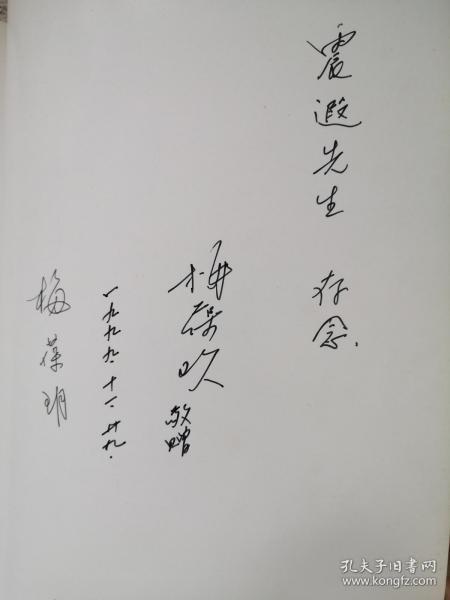 震遐先生 存念.
梅葆玖 敬赠
一九九九.十一.廿九.
梅葆玥
孔夫子旧书网
www.kongfz.com